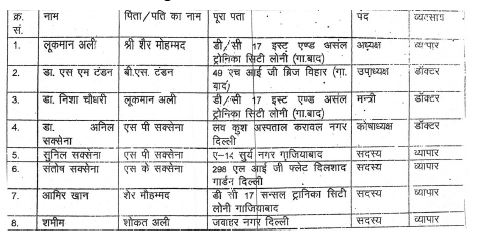 क्र. नाम पिता/पति का नाम पूरा पता पद व्यवसाय
सं.
1. लूकमान अली श्री शेर मोहम्मद डी/सी 17 इस्ट एण्ड असंल अध्यक्ष व्यापार
ट्रोनिका सिटी लोनी (गा.बाद)
2. डा. एस एम टंडन बी.एस. टंडन 49 एच आई जी ब्रिज विहार (गा. उपाध्यक्ष डॉक्टर
बाद)
3. डा. निशा चौधरी लूकमान अली डी/सी 17 इस्ट एण्ड असंल मन्त्री डॉक्टर
ट्रोनिका सिटी लोनी (गा.बाद)
4. डा. अनिल एस पी सक्सेना लव कुश अस्पताल करावल नगर कोषाध्यक्ष डॉक्टर
सक्सेना दिल्ली
5. सुनिल सक्सेना एस पी सक्सेना ए-14 सुर्य नगर गाजियाबाद सदस्य व्यापार
6. संतोष सक्सेना एस के सक्सेना 298 एल आई जी फ्लेट दिलशाद सदस्य व्यापार
गार्डन दिल्ली
7. आमिर खान शेर मौहम्मद डी सी 17 सन्सल ट्रानिका सिटी सदस्य व्यापार
लोनी गाजियाबाद
8. शमीम शोकत अली जवाहर नगर दिल्ली सदस्य व्यापार